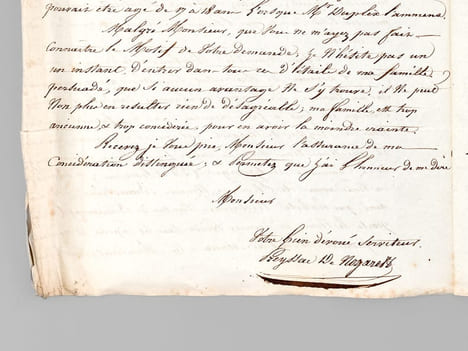 pouvait etre agé de 17 à 18 ans lorsque Mr Dupleix l'ammena.
Malgré Monsieur, que vous ne m'ayez pas fait
connaitre le Motif de votre demande, je N'hésite pas un
un instant D'entrer dans tous ces détails de ma famille
persuadé, que si aucun avantage Ne s'y trouve, il Ne peut
Non plus en resulter rien de désagréable; ma famille est trop
ancienne, & trop considérée, pour en avoir la moindre crainte.
Recevez je vous prie, Monsieur l'assurance de ma
Considération distinguée; & permetez que j'ai l'honneur de me dire
Monsieur
Votre bien dévoué serviteur.
De Nogaret